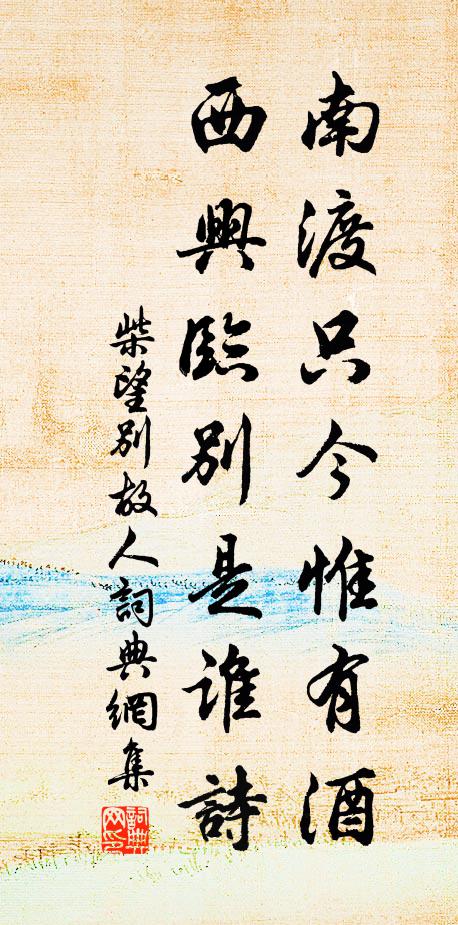 南渡只今惟有酒
西興臨別是誰詩
柴望別故人詞典網集
詞典網印